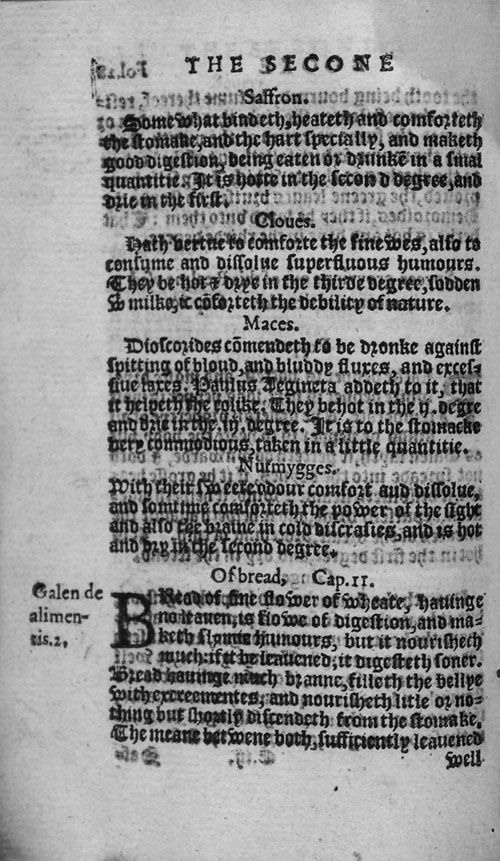 THE SECONE
Saffron.
Somewhat bindeth, heateth and comforteth
the stomake, and the hart specially, and maketh
good digestion, being eaten or drunkē in a smal
quantitie. It is hotte in the second degree, and
drie in the first.
Cloues.
Hath vertue to comforte the sinewes, also to
consume and dissolue superfluous humours.
They be hot & drye in the thirde degree, sodden
w milke, it cōforteth the debility of nature.
Maces.
Dioscorides cōmendeth to be dronke against
spitting of bloud, and bluddy fluxes, and exces-
siue laxes. Paulus Aegineta addeth to it, that
it helpeth the colike. They be hot in the ij. degre
and drie in the iij. degree. It is to the stomacke
very commodious, taken in a little quantitie.
Nutmygges.
With their sweete odour comfort and dissolue,
and somtime comforteth the power of the sight
and also the braine in cold discrasies, and is hot
and dry in the second degree.
Of bread, Cap. 11.
Galen de
alimen-
tis. 2,
BRead of fine flower of wheate, hauinge
no leauen, is slowe of digestion, and ma-
keth slymie humours, but it nourisheth
much: if it be leauened, it digesteth soner.
Bread hauinge much branne, filleth the bellye
with excrementes, and nourisheth litle or no-
thing but shortly discendeth from the stomake.
The meane betwene both, sufficiently leauened
well